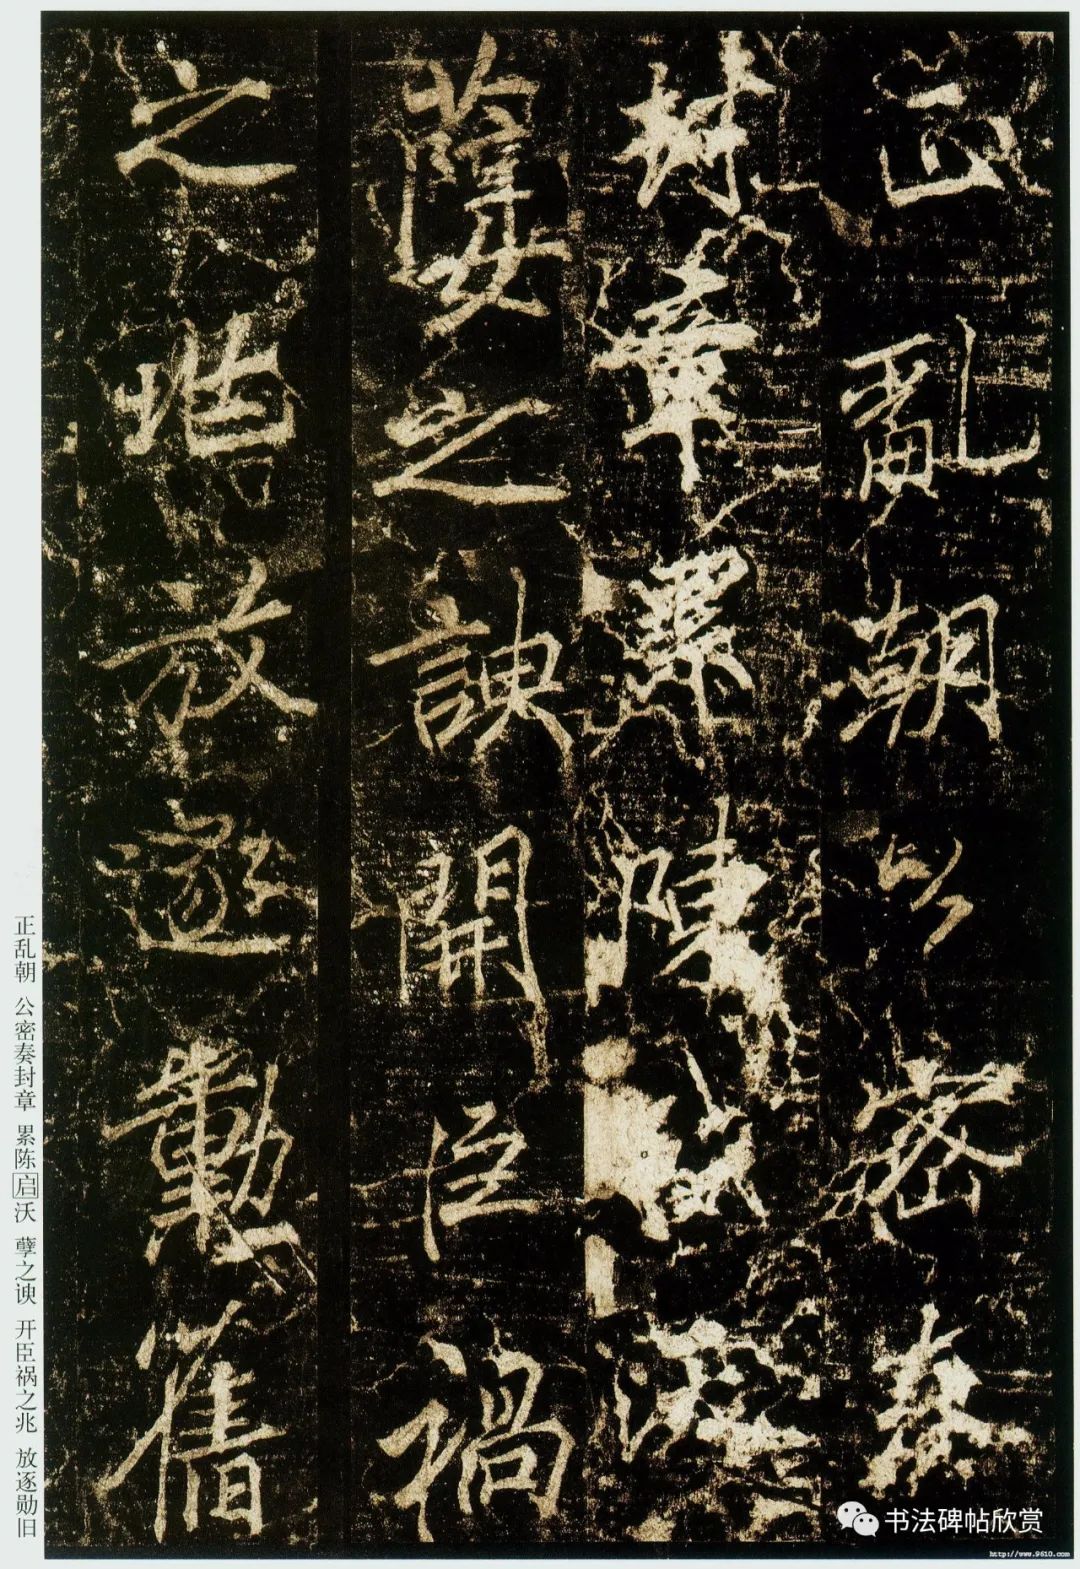 正亂朝公密奏
封章累陳
之諛開臣禍
之堦放逐勳舊
正乱朝 公密奏封章 累陈启沃 孽之谀 开臣祸之兆 放逐勋旧
书法碑帖欣赏
http://www.9610.com